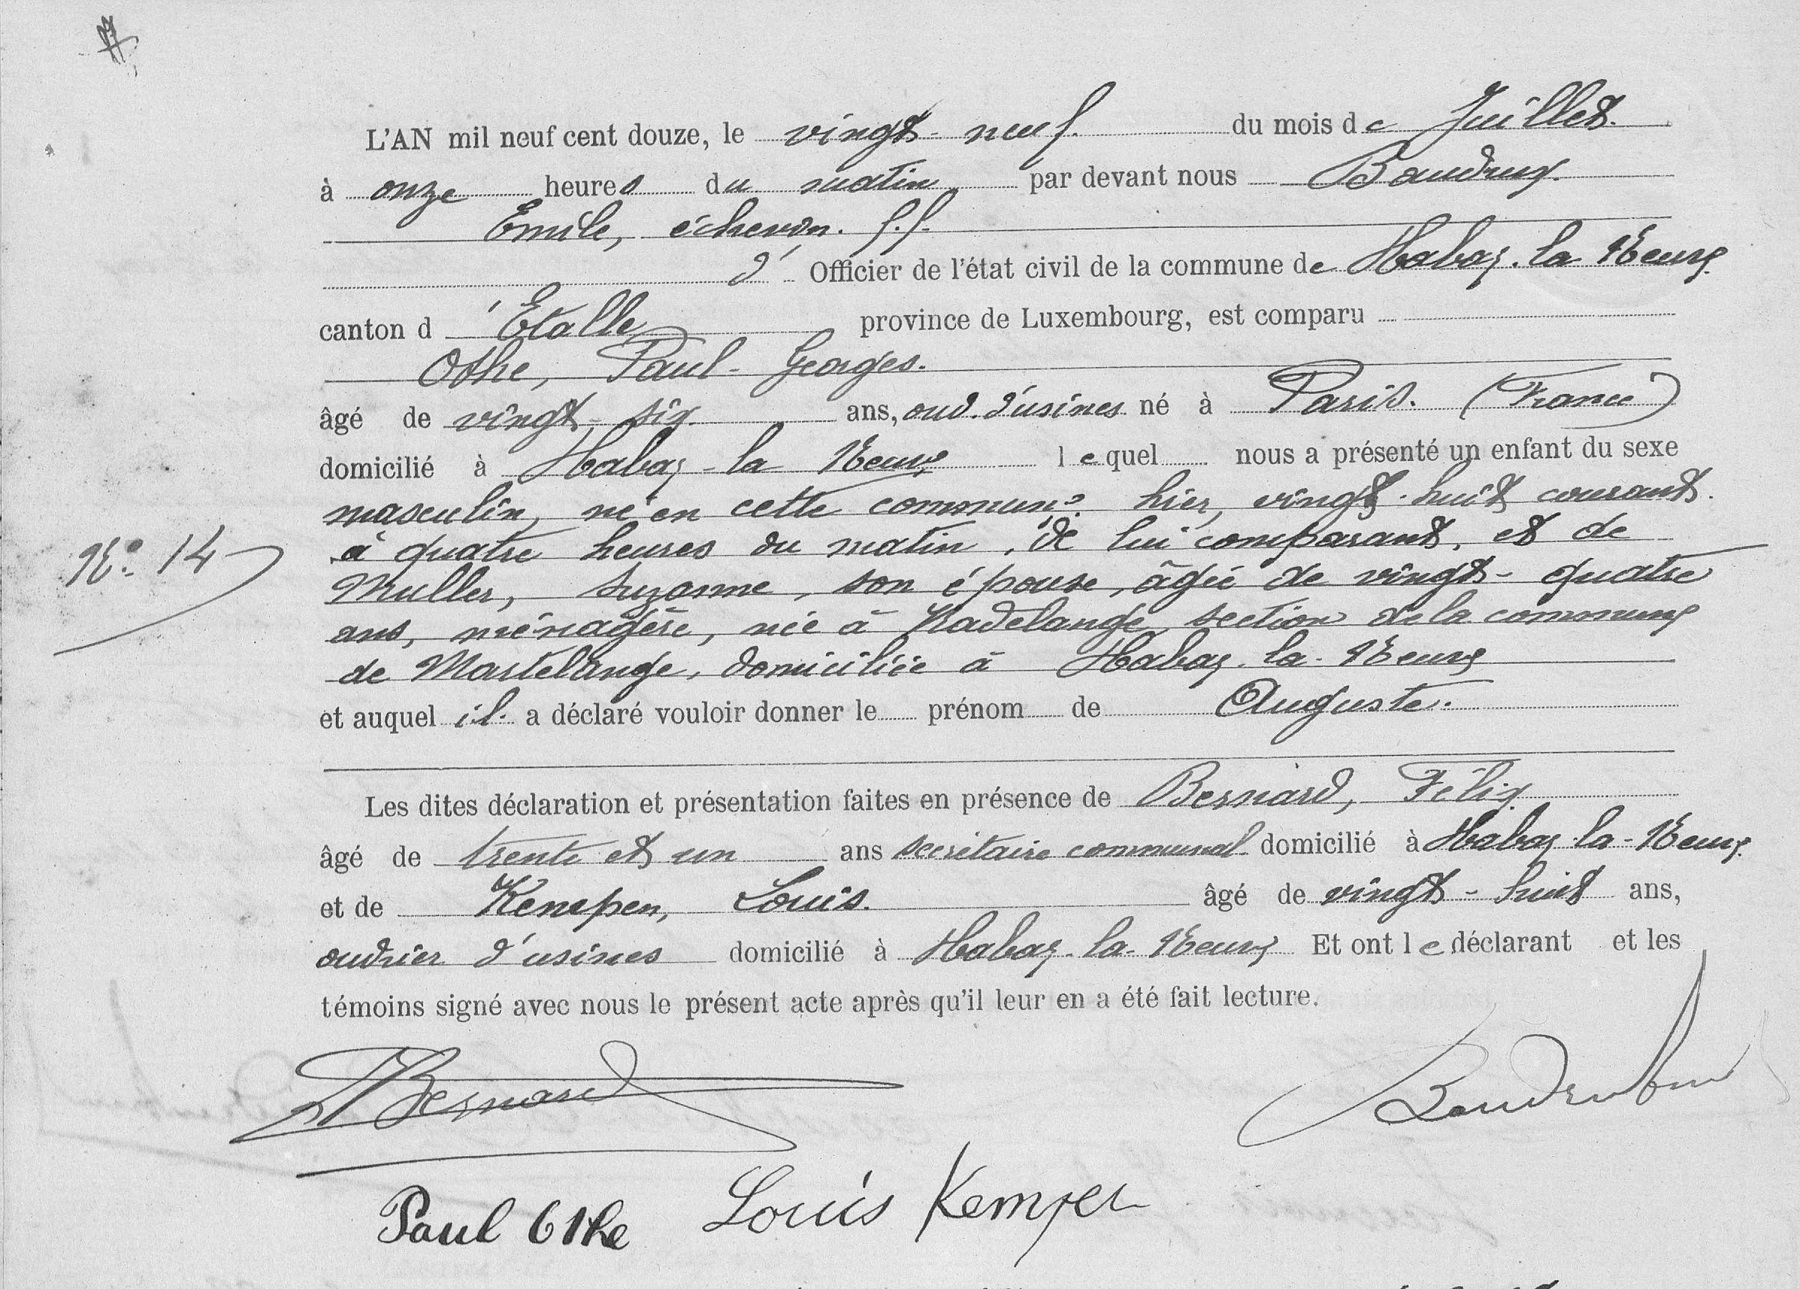 L'AN mil neuf cent douze, le vingt-neuf. du mois de Juillet.
à onze heures du matin, par devant nous Baudrux.
Emile, échevin. f.f.
d' Officier de l'état civil de la commune de Habay-la-Neuve
canton d'Etalle province de Luxembourg, est comparu
Othe, Paul-Georges.
âgé de vingt-six ans, ouv. d'usines né à Paris. (France)
domicilié à Habay-la-Neuve lequel nous a présenté un enfant du sexe
masculin, né en cette commune hier, vingt-huit courant.
à quatre heures du matin, de lui comparant, et de
N° 14
Muller, Suzanne, son épouse, âgée de vingt-quatre
ans, ménagère, née à Radelange, section de la commune
de Martelange, domiciliée à Habay-la-Neuve
et auquel il a déclaré vouloir donner le prénom de Auguste.
Les dites déclaration et présentation faites en présence de Bernard, Félix
âgé de trente et un ans secrétaire communal domicilié à Habay-la-Neuve
et de Kempen, Louis. âgé de vingt-huit ans,
ouvrier d'usines domicilié à Habay-la-Neuve Et ont le déclarant et les
témoins signé avec nous le présent acte après qu'il leur en a été fait lecture.
Bernard
Paul Othe Louis Kempen